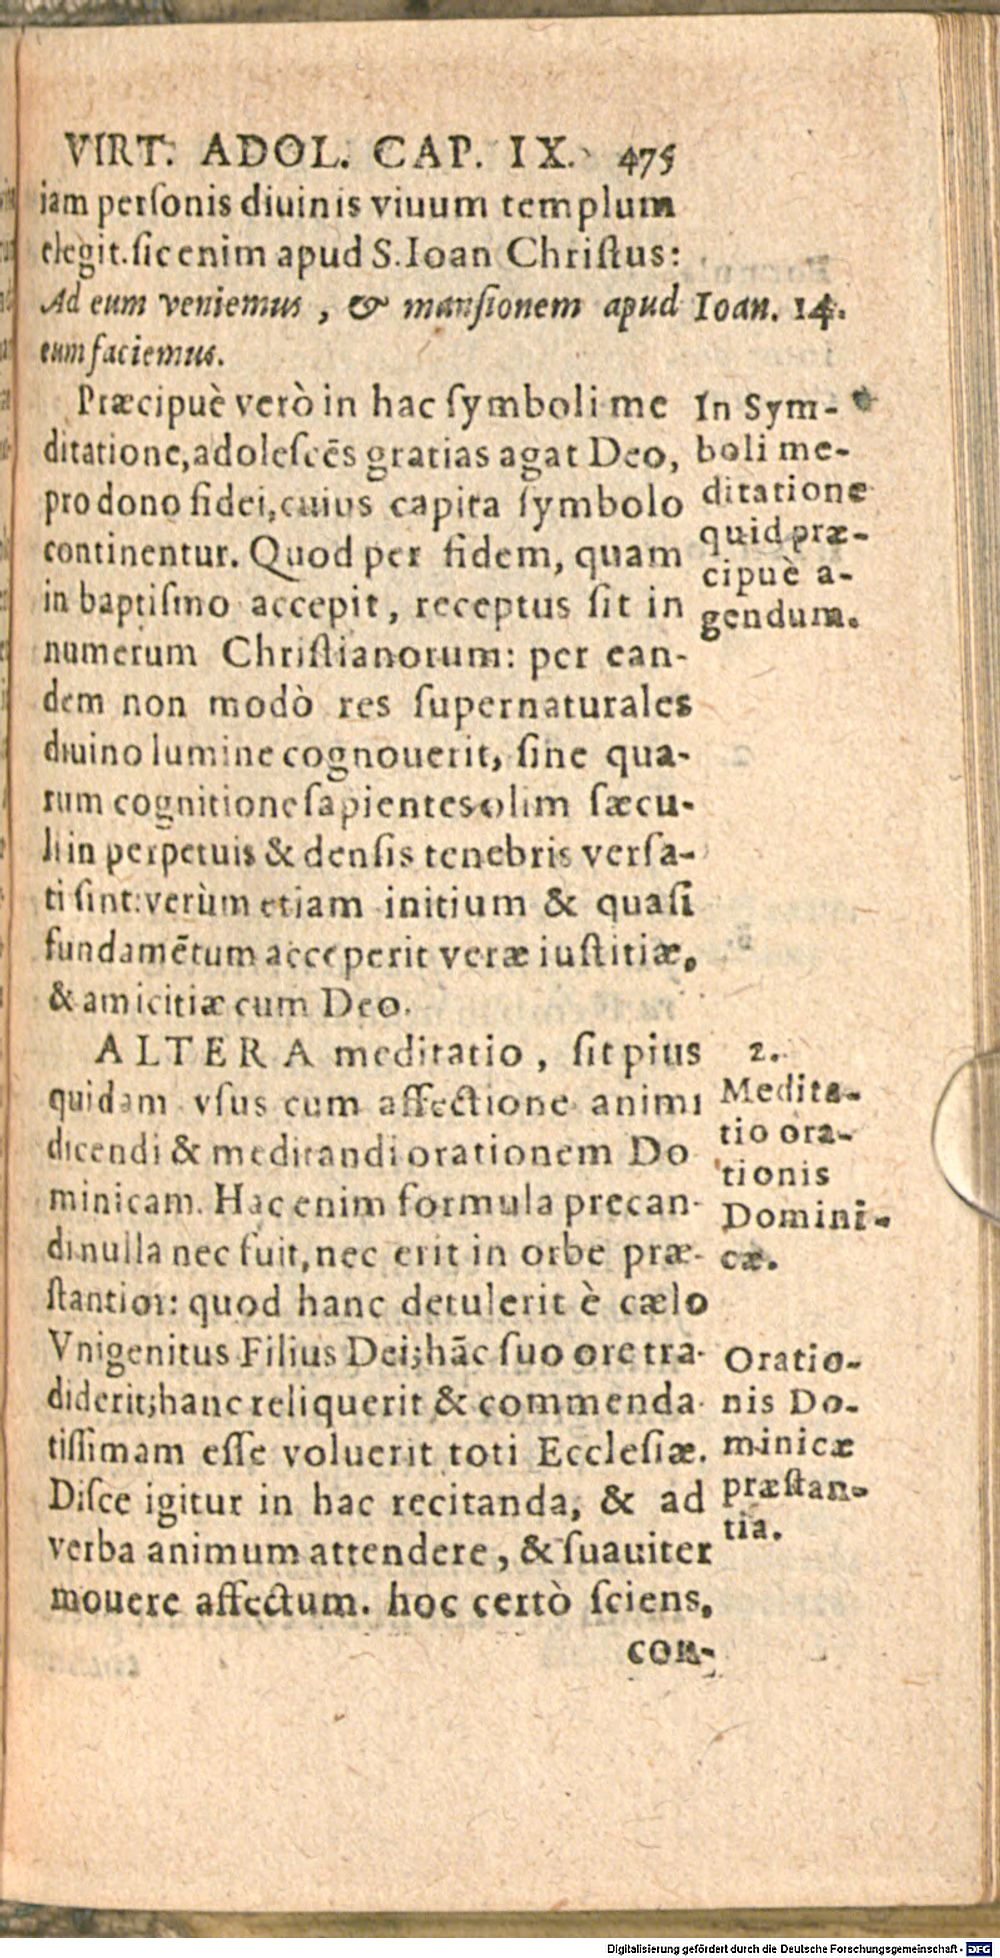 VIRT. ADOL. CAP. IX. 475
iam perſonis diuinis viuum templum
elegit. ſic enim apud S. Ioan Chriſtus:
Ad eum veniemus, & manſionem apud
eum faciemus.
Ioan. 14.
Præcipuè verò in hac ſymboli me
ditatione, adoleſcēs gratias agat Deo,
pro dono fidei, cuius capita ſymbolo
continentur. Quod per fidem, quam
in baptiſmo accepit, receptus ſit in
numerum Chriſtianorum: per ean-
dem non modò res ſupernaturales
diuino lumine cognouerit, ſine qua-
rum cognitione ſapientes olim ſæcu-
li in perpetuis & denſis tenebris verſa-
ti ſint: verùm etiam initium & quaſi
fundamētum acceperit veræ iuſtitiæ,
& amicitiæ cum Deo.
In Sym-
boli me-
ditatione
quid præ-
cipuè a-
gendum.
ALTERA meditatio, ſit pius
quidam vſus cum affectione animi
dicendi & meditandi orationem Do
minicam. Hac enim formula precan-
di nulla nec fuit, nec erit in orbe præ-
ſtantior: quod hanc detulerit è cælo
Vnigenitus Filius Dei; hāc ſuo ore tra-
diderit; hanc reliquerit & commenda-
tiſſimam eſſe voluerit toti Eccleſiæ.
Diſce igitur in hac recitanda, & ad
verba animum attendere, & ſuauiter
mouere affectum. hoc certò ſciens,
con-
2.
Medita-
tio ora-
tionis
Domini-
cæ.
Oratio-
nis Do-
minicæ
præſtan-
tia.
Digitalisierung gefördert durch die Deutsche Forschungsgemeinschaft - DFG